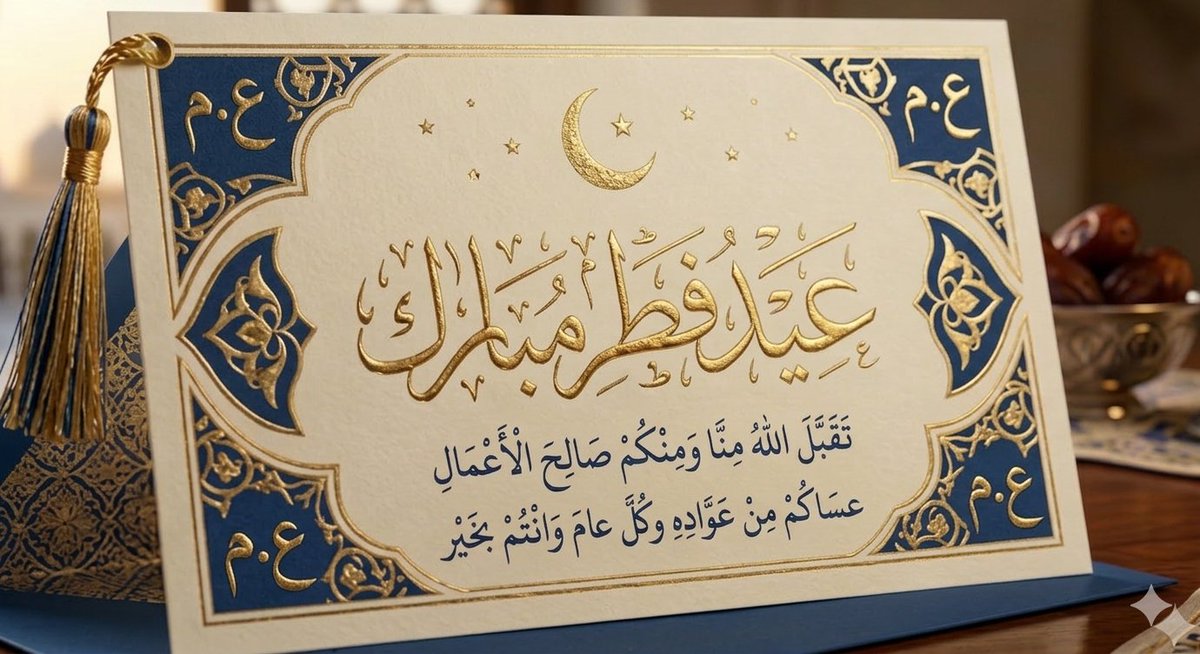 ع.م
ع.م
عِيْدُ فِطْرٍ مُبَارَك
تَقَبَّلَ اللهُ مِنَّا وَمِنْكُمْ صَالِحَ الْأَعْمَالِ
عسَاكُمْ مِنْ عَوَّادِهِ وكُلَّ عامَ وَانْتُمْ بخَيْر
ع.م
ع.م